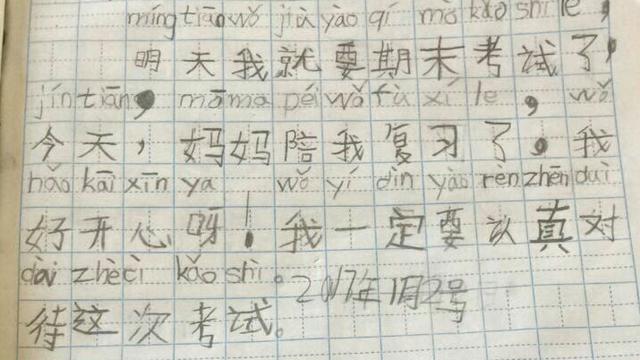 míng tiān wǒ jiù yào qí mò kǎo shì le,
明天我就要期末考试了,
jīn tiān, mā ma péi wǒ fù xí le, wǒ
今天,妈妈陪我复习了。我
hǎo kāi xīn ya wǒ yí dìn yào rèn zhēn duì
好开心呀!我一定要认真对
dài zhè cì kǎo shì。
待这次考试。2017年1月2号